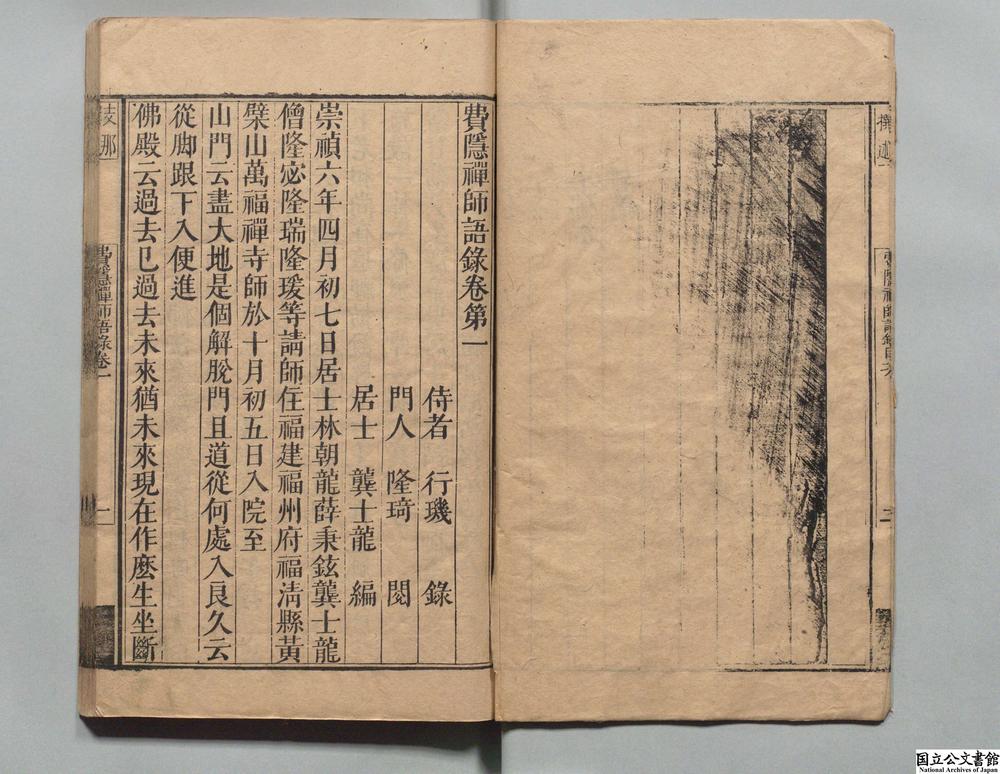 費隱禪師語錄卷第一
侍者 行璣 錄
門人 隆琦 閱
居士 龔士龍 編
崇禎六年四月初七日居士林朝龍薛秉鉉龔士龍
僧隆宓隆瑞隆瑗等請師住福建福州府福清縣黃
檗山萬福禪寺師於十月初五日入院至
山門云盡大地是個解脫門且道從何處入良久云
從脚跟下入便進
佛殿云過去已過去未來猶未來現在作麽生坐斷
支那
費隱禪師語錄卷一
一
撰述
二
国立公文書館
National Archives of Japan